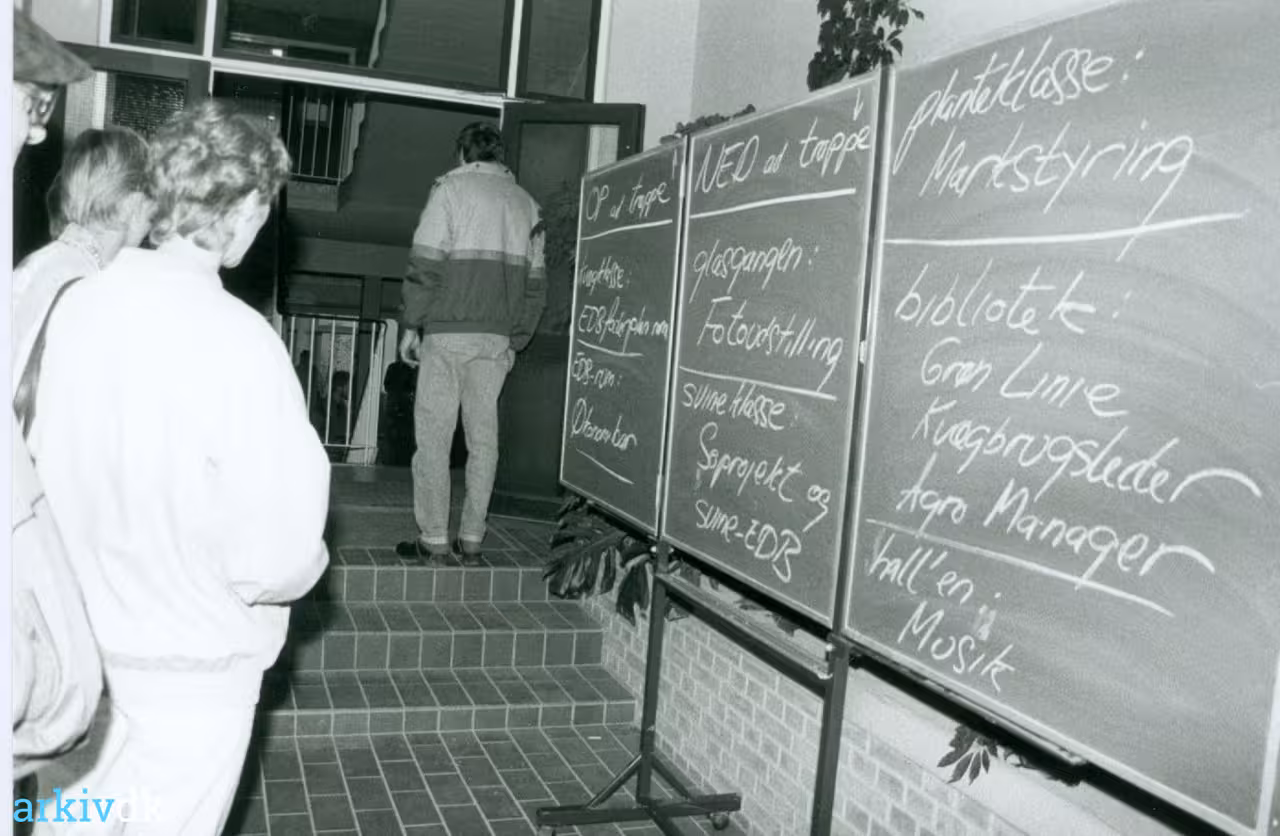 OP ad trappe
Kvægklasse:
EDB foderplan mm
EDB-rum:
Økonombar
NED ad trappe
glasgangen:
Fotoudstilling
svineklasse:
Soprojekt og
svine-EDB
planteklasse:
Markstyring
bibliotek:
Grøn Linie
Kvægbrugsleder
Agro Manager
hall'en:
Musik
arkivdk